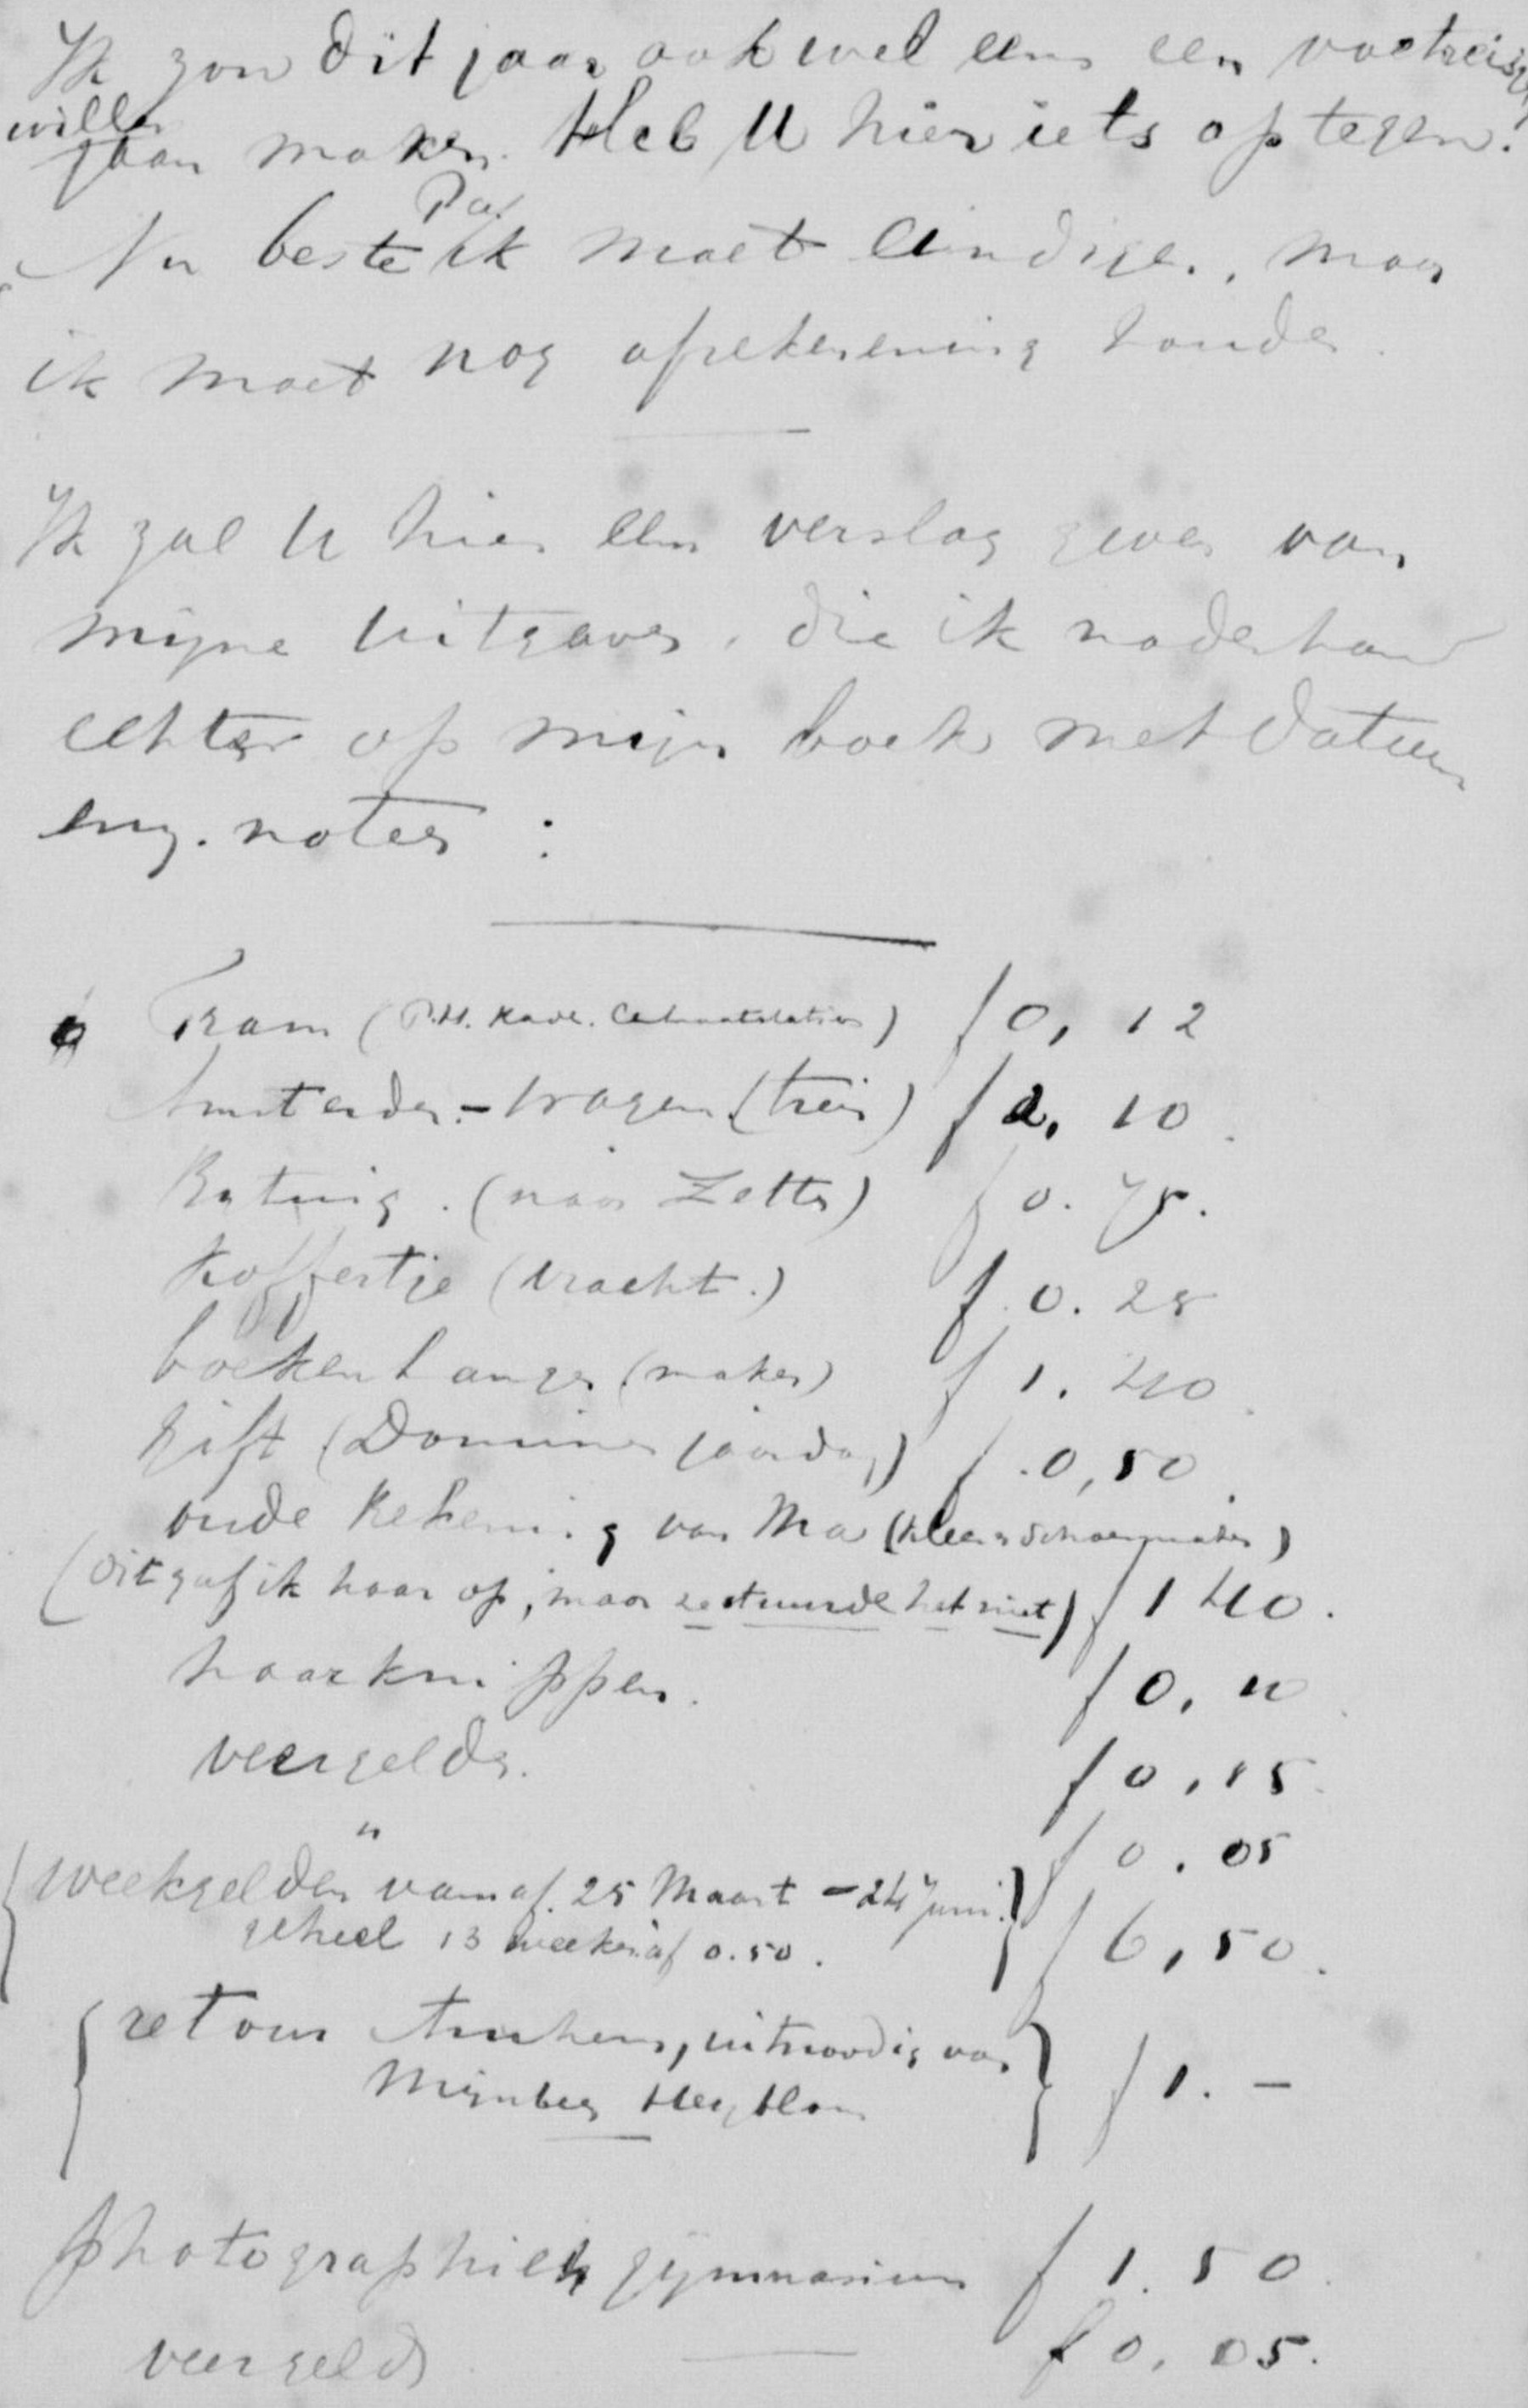 Ik zou dit jaar ook wel eens een voetreisje
willen
gaan maken. Heb U hier iets op tegen?
Pa,
Nu beste ik moet eindigen, maar
ik moet nog afrekenening houden.
Ik zal U hier een verslag geven van
mijne uitgaven, die ik naderhand
echter op mijn boek met datum
enz. noteer :
Tram (P.H. Kade. ) f 0,12
Amsterdam - Wagen (trein) f 2,10.
Katwig. (naar Zetten) f 0.75.
Koffertje (vracht.) f. 0.25
boekenhanger (maken) f 1.40.
gift (Dominee jaardag) f. 0,50.
oude Rekening van Ma (kleer schoenmaker)
(Dit gaf ik haar op, maar ze stuurde het niet) f 1 40.
haarknippen. f 0,
veergelden. f 0,15.
" f 0.05
weekgelden vanaf 25 Maart - 24 Juni.
geheel 13 weken af 0.50. f 6,50.
retour Arnhem, uitnoodig van
Mijnheer f 1. -
photographiek gymnasium f 1.50.
veergeld f 0,05.